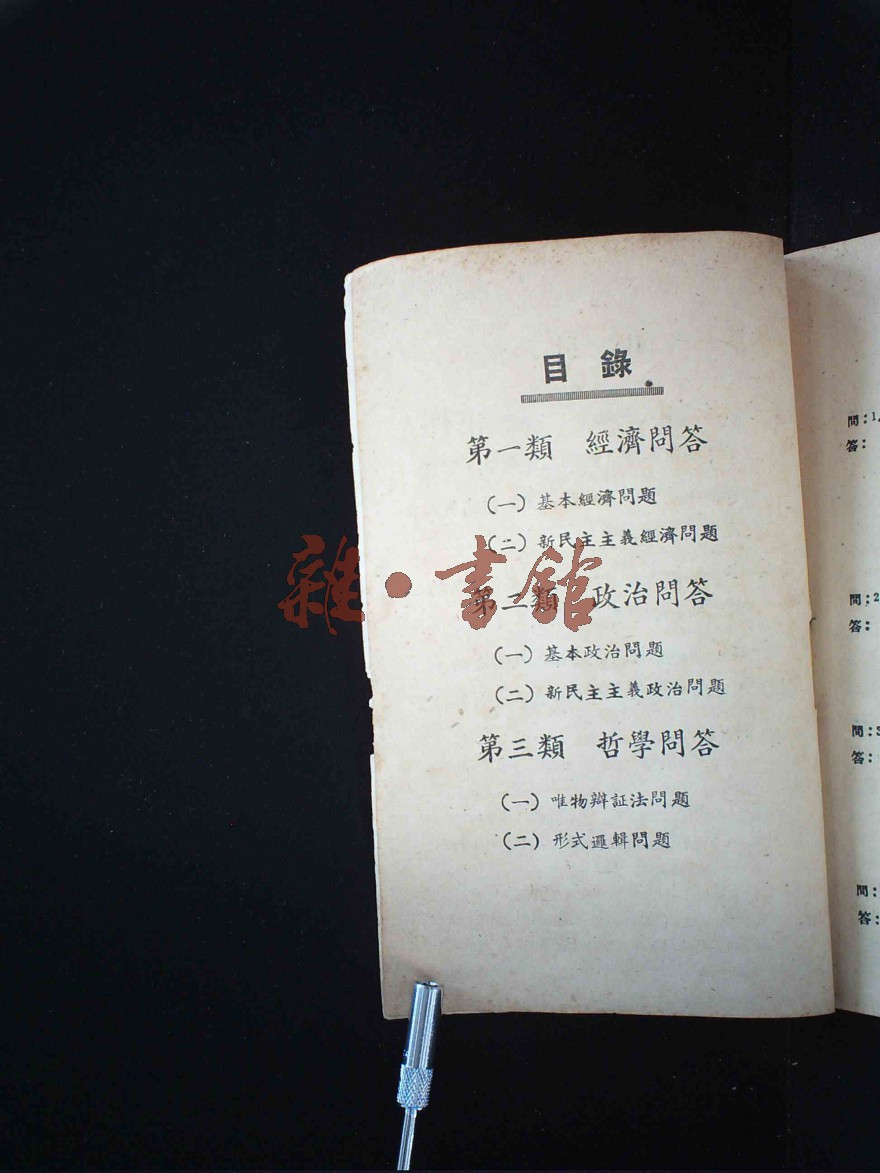 目錄
第一類 經濟問答
(一) 基本經濟問題
(二) 新民主主義經濟問題
第二類 政治問答
(一) 基本政治問題
(二) 新民主主義政治問題
第三類 哲學問答
(一) 唯物辯証法問題
(二) 形式邏輯問題
雜·書館
問:1.
答:
問:2
答:
問:3
答:
問:
答: